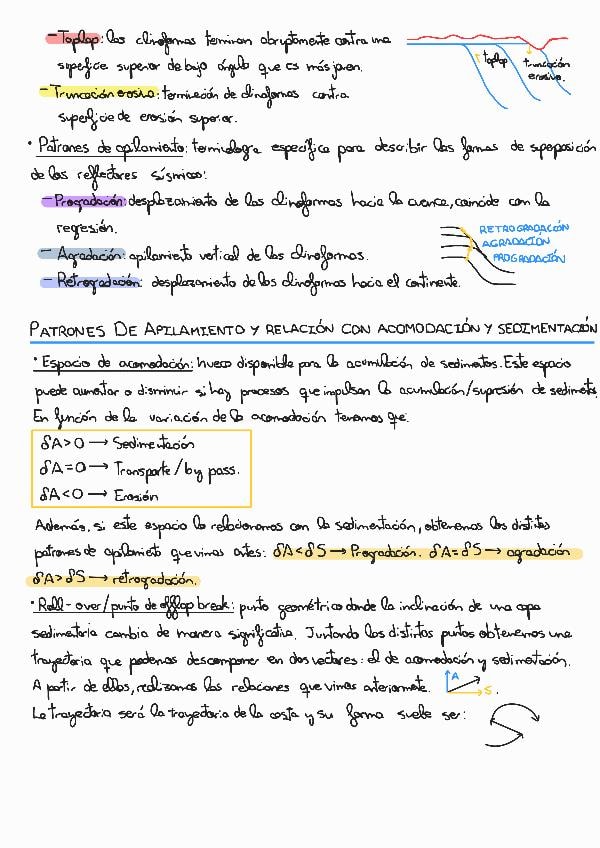 - Toplap: las clinoformas terminan abruptamente contra una
superficie superior de bajo ángulo que es más joven.
toplap
truncación
erosiva.
- Truncación erosiva: terminación de clinoformas contra
superficie de erosión superior.
• Patrones de apilamiento: terminología específica para describir las formas de superposición
de los reflectores sísmicos:
- Progradación: desplazamiento de las clinoformas hacia la cuenca, coincide con la
regresión.
- Agradación: apilamiento vertical de las clinoformas.
- Retrogradación: desplazamiento de las clinoformas hacia el continente.
RETROGRADACIÓN
AGRADACIÓN
PROGRADACIÓN
PATRONES DE APILAMIENTO Y RELACIÓN CON ACOMODACIÓN Y SEDIMENTACIÓN
• Espacio de acomodación: hueco disponible para la acumulación de sedimentos. Este espacio
puede aumentar o disminuir si hay procesos que impulsan la acumulación/supresión de sedimento.
En función de la variación de la acomodación tenemos que:
δA>0 → Sedimentación
δA=0 → Transporte/by pass.
δA<0 → Erosión
Además, si este espacio lo relacionamos con la sedimentación, obtenemos los distintos
patrones de apilamiento que vimos antes: δA<δS → Progradación. δA=δS → agradación
δA>δS → retrogradación.
• Roll-over/punto de offlap break: punto geométrico donde la inclinación de una capa
sedimentaria cambia de manera significativa. Juntando los distintos puntos obtenemos una
trayectoria que podemos descomponer en dos vectores: el de acomodación y sedimentación.
A partir de ellos, realizamos las relaciones que vimos anteriormente. A S.
La trayectoria será la trayectoria de la costa y su forma suele ser: